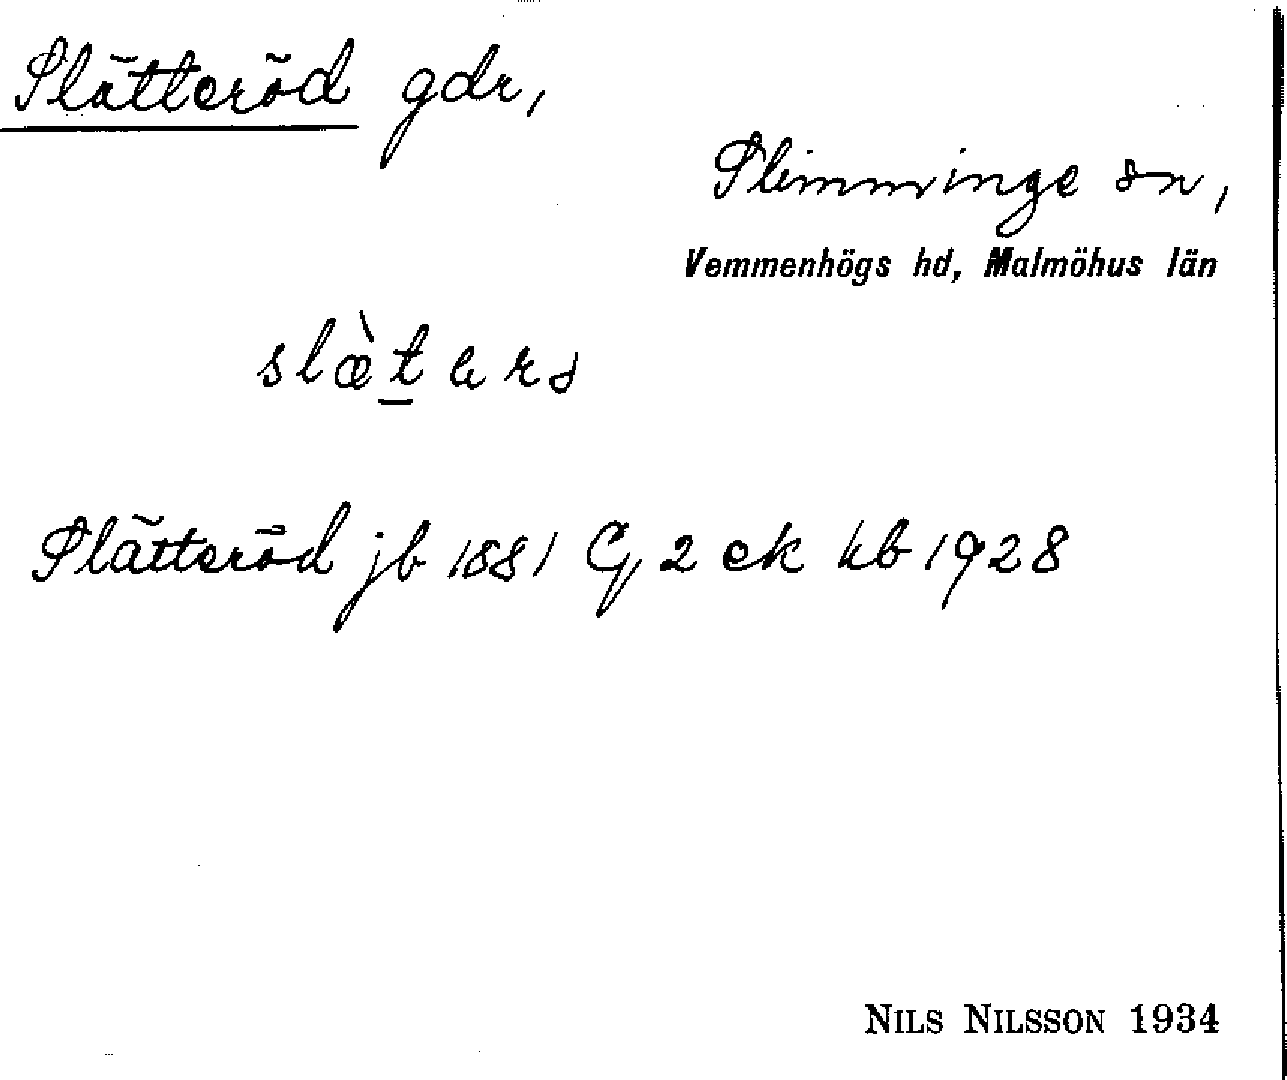 Slätteröd gdr,
Slimminge sn,
Vemmenhögs hd, Malmöhus län
Slätteröd jb 1881 C, 2 ek kb 1928
NILS NILSSON 1934